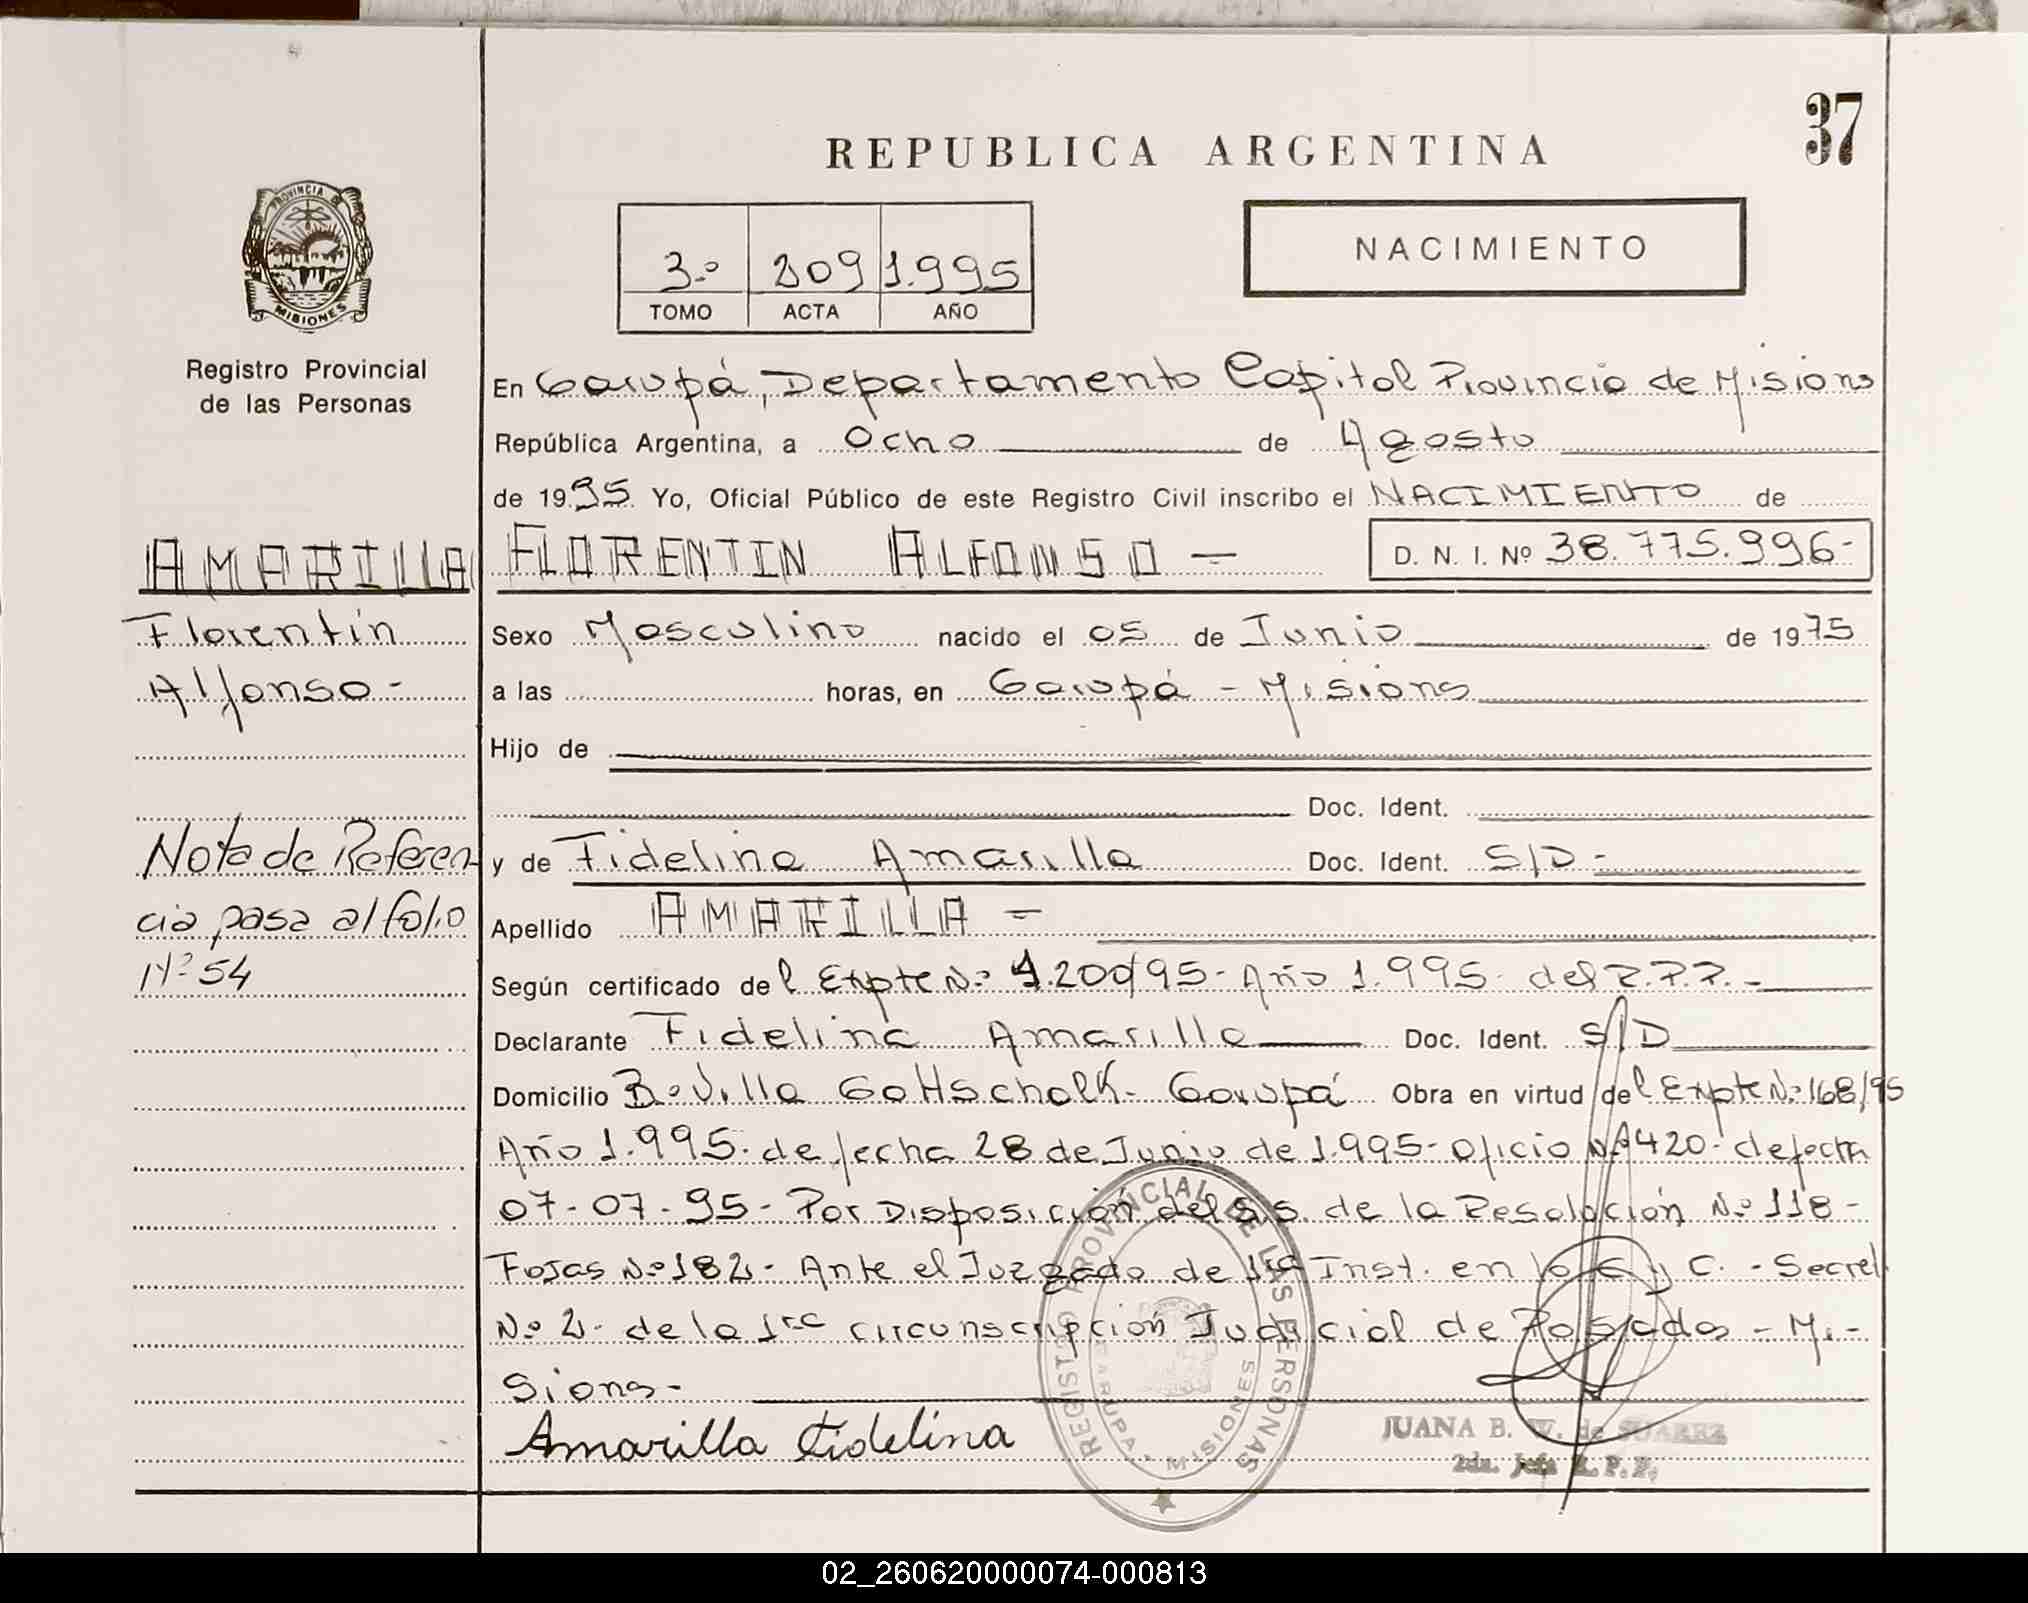 37
REPUBLICA ARGENTINA
PROVINCIA DE
MISIONES
Registro Provincial
de las Personas
3.º 209 1.995
TOMO ACTA AÑO
NACIMIENTO
En Garupá, Departamento Capital Provincia de Misiones
República Argentina, a Ocho de Agosto
de 1995. Yo, Oficial Público de este Registro Civil inscribo el NACIMIENTO de
AMARILLA FLORENTIN ALFONSO — D. N. I. Nº 38.775.996-
Florentín
Alfonso-
Sexo Masculino nacido el 05 de Junio de 1975
a las horas, en Garupá - Misiones
Hijo de
Doc. Ident.
Nota de Referen
cia pasa al folio
Nº 54
y de Fidelina Amarilla Doc. Ident. S/D-
Apellido AMARILLA —
Según certificado del Expte Nº 4.200/95- Año 1.995- del R.P.P.-
Declarante Fidelina Amarilla Doc. Ident. S/D
Domicilio Bº Villa Gottschalk- Garupá Obra en virtud del Expte Nº 168/95
Año 1.995- de fecha 28 de Junio de 1.995- Oficio Nº 420- de fecha
07-07-95- Por Disposición del S.S. de la Resolución Nº 118-
Fojas Nº 182- Ante el Juzgado de 1ra Inst. en lo C y C. - Secret
Nº 2- de la 1ra circunscripción Judicial de Posadas - Mi-
siones-
Amarilla Fidelina
REGISTRO PROVINCIAL DE LAS PERSONAS
GARUPA - MISIONES
JUANA B. W. de SUAREZ
2da. Jefa R. P. P.
02_260620000074-000813